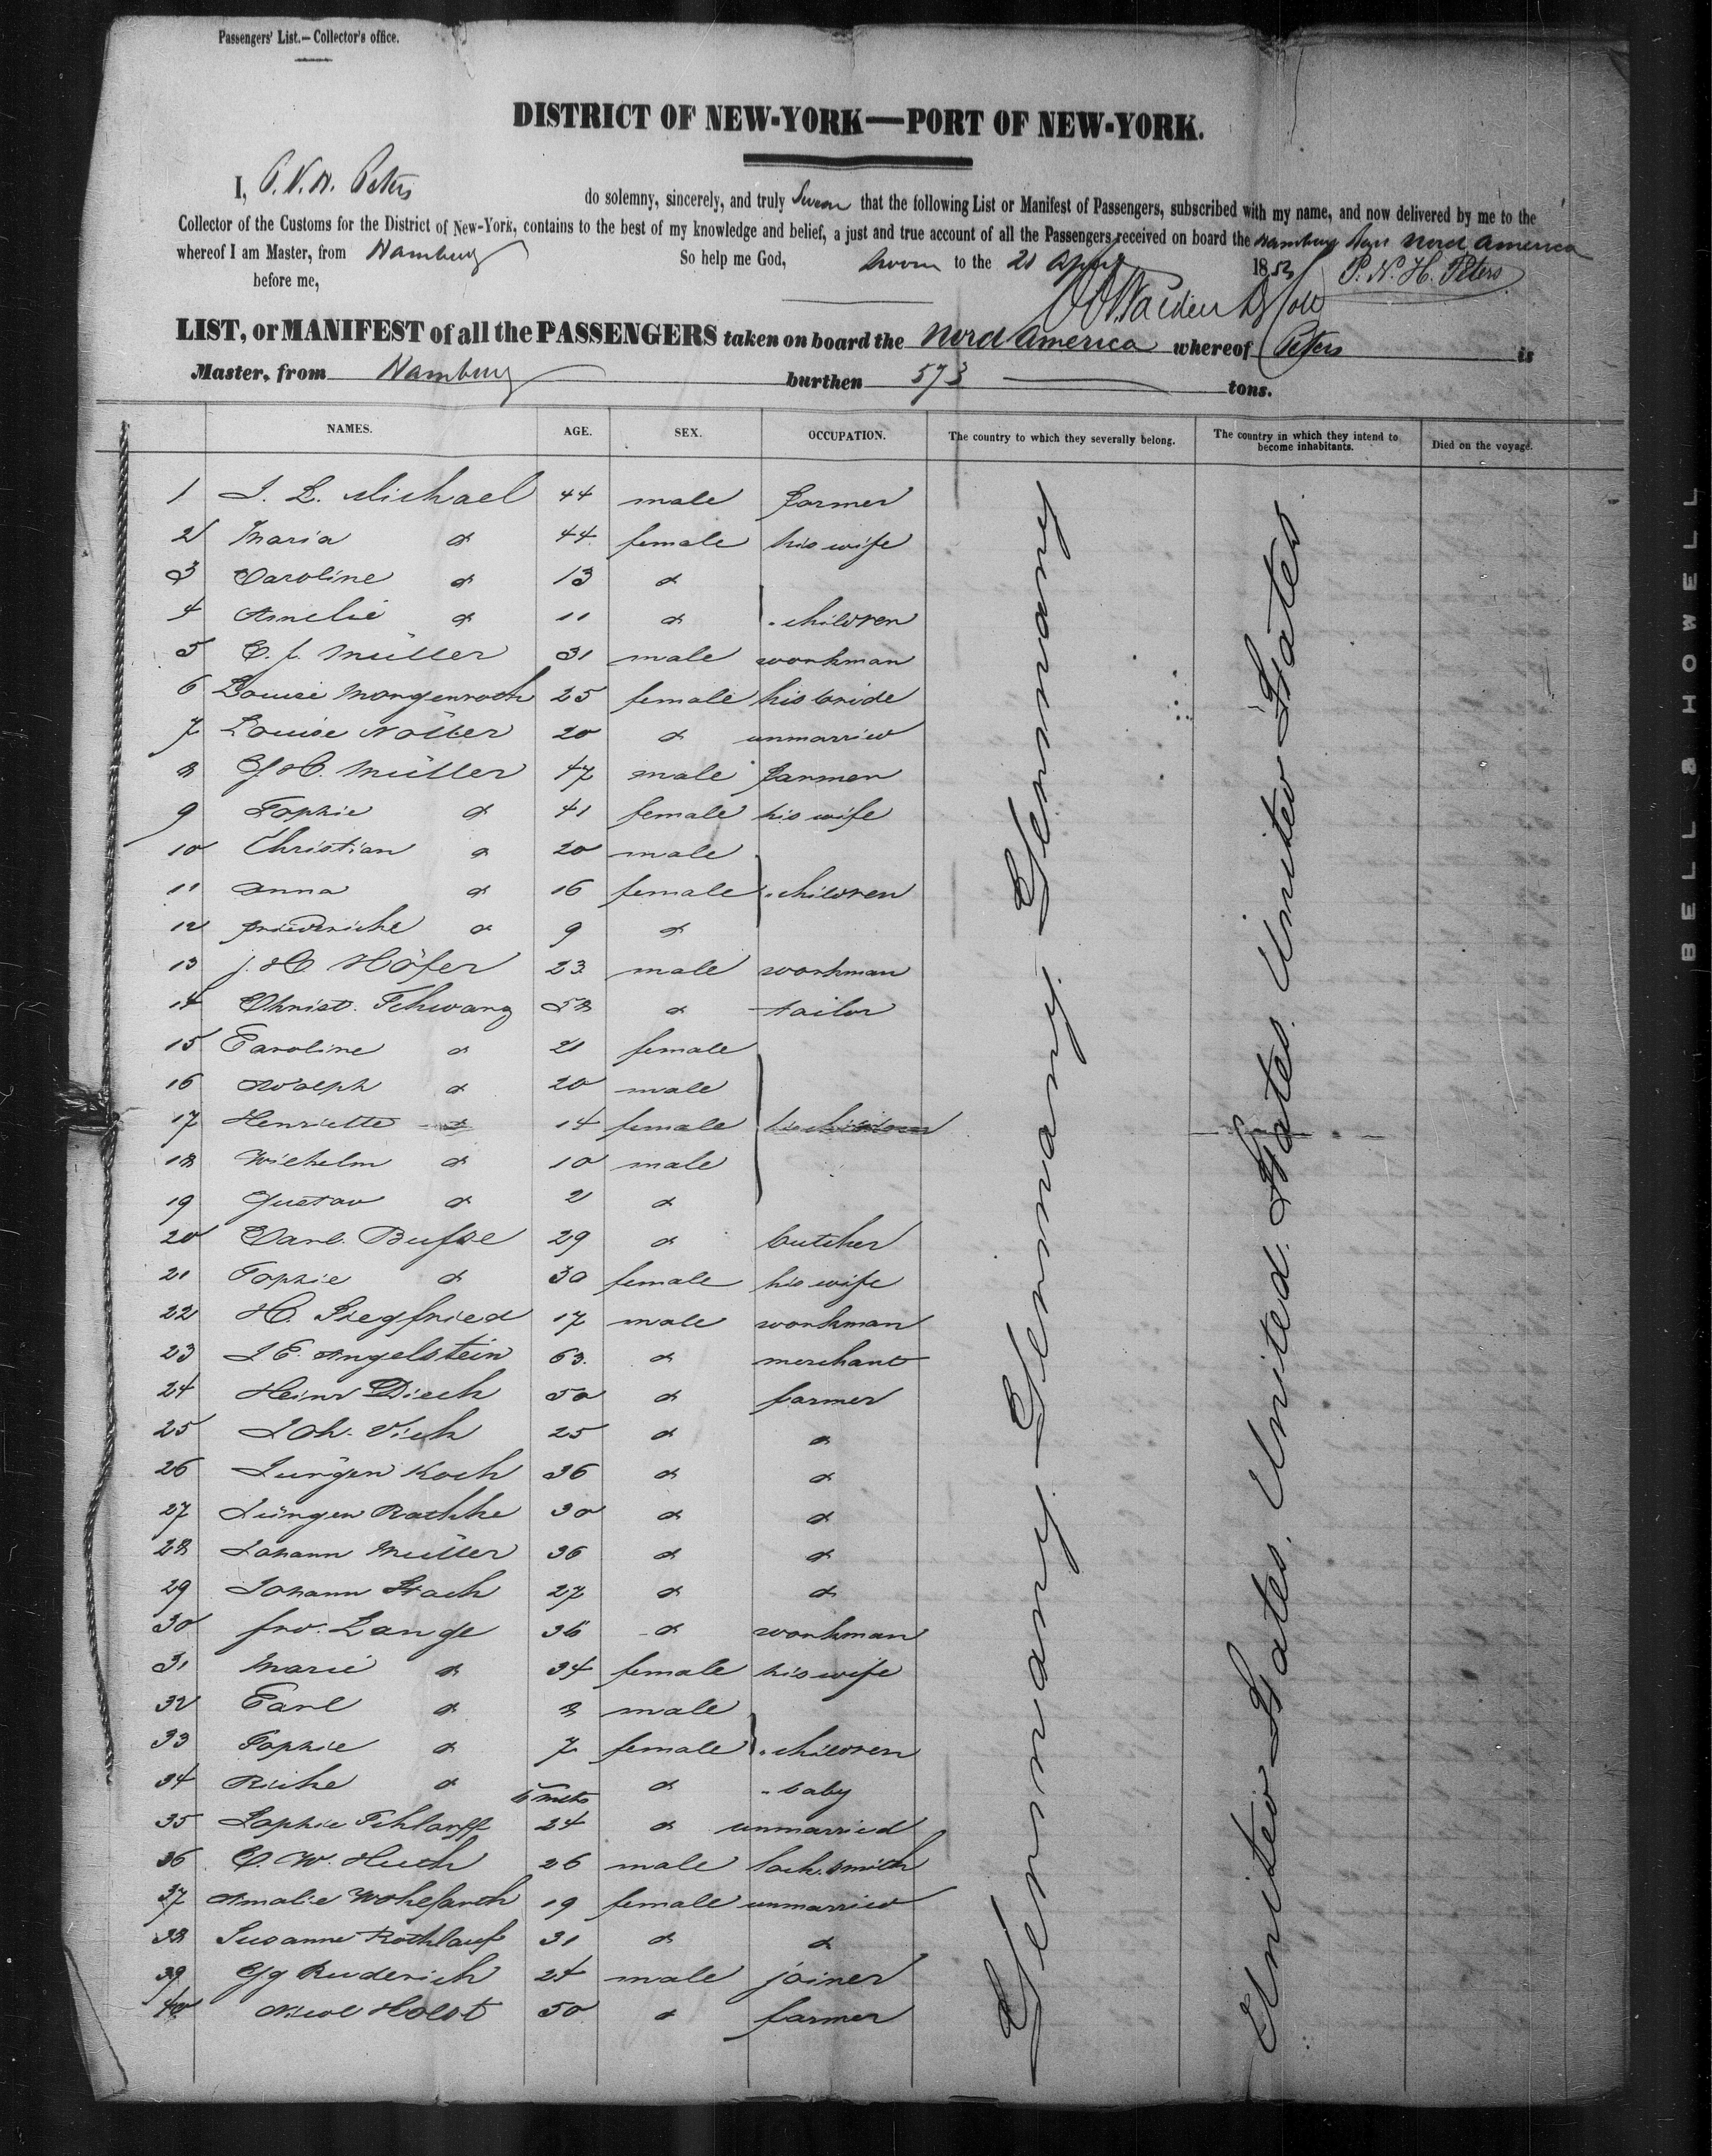 Passengers' List.—Collector's office.
DISTRICT OF NEW-YORK—PORT OF NEW-YORK.
I, P. N. H. Peters do solemny, sincerely, and truly Swear that the following List or Manifest of Passengers, subscribed with my name, and now delivered by me to the
Collector of the Customs for the District of New-York, contains to the best of my knowledge and belief, a just and true account of all the Passengers received on board the Hamburg Nord America
whereof I am Master, from Hamburg So help me God, Sworn to the 21 April 185 P. N. H. Peters
before me,
LIST, or MANIFEST of all the PASSENGERS taken on board the Nord America whereof Peters is
Master, from Hamburg burthen 573 tons.
NAMES. AGE. SEX. OCCUPATION. The country to which they severally belong. The country in which they intend to become inhabitants. Died on the voyage.
1 J. L. Michael 44 male farmer
2 Maria d 44 female his wife
3 Caroline d 13 d
4 Amelie d 11 d children
5 C. J. Müller 31 male workman
6 Louise Morgenroth 25 female his bride
7 Louise Nöller 20 d unmarried
8 G. H. Müller 47 male farmer
9 Sophie d 41 female his wife
10 Christian d 20 male
11 Anna d 16 female children
12 Friedericke d 9 d
13 J. H. Höfer 23 male workman
14 Christ. Schwarz 58 d tailor
15 Caroline d 21 female
16 Adolph d 20 male
17 Henriette d 14 female
18 Wilhelm d 10 male
19 Gustav d 2 d
20 Carl Busse 29 d butcher
21 Sophie d 30 female his wife
22 H. Siegfried 17 male workman
23 J E. Angelstein 63 d merchant
24 Heinr Diech 50 d farmer
25 Joh. Vick 25 d d
26 Jürgen Koch 36 d d
27 Jürgen Rathke 30 d d
28 Johann Müller 36 d d
29 Johann Stach 27 d d
30 Frd. Lange 36 d workman
31 Marie d 34 female his wife
32 Carl d 8 male
33 Sophie d 7 female children
34 Rieke d mths d baby
35 Sophie Schlorff 24 d unmarried
36 C. W. Huth 26 male lock smith
37 Amalie Wohlfarth 19 female unmarried
38 Susanne Rothlauf 31 d d
39 Gg Ruderich 24 male joiner
40 Nicol Holst 50 d farmer
Germany. Germany. Germany. Germany
United States. United States. United States. United States.
BELL & HOWELL